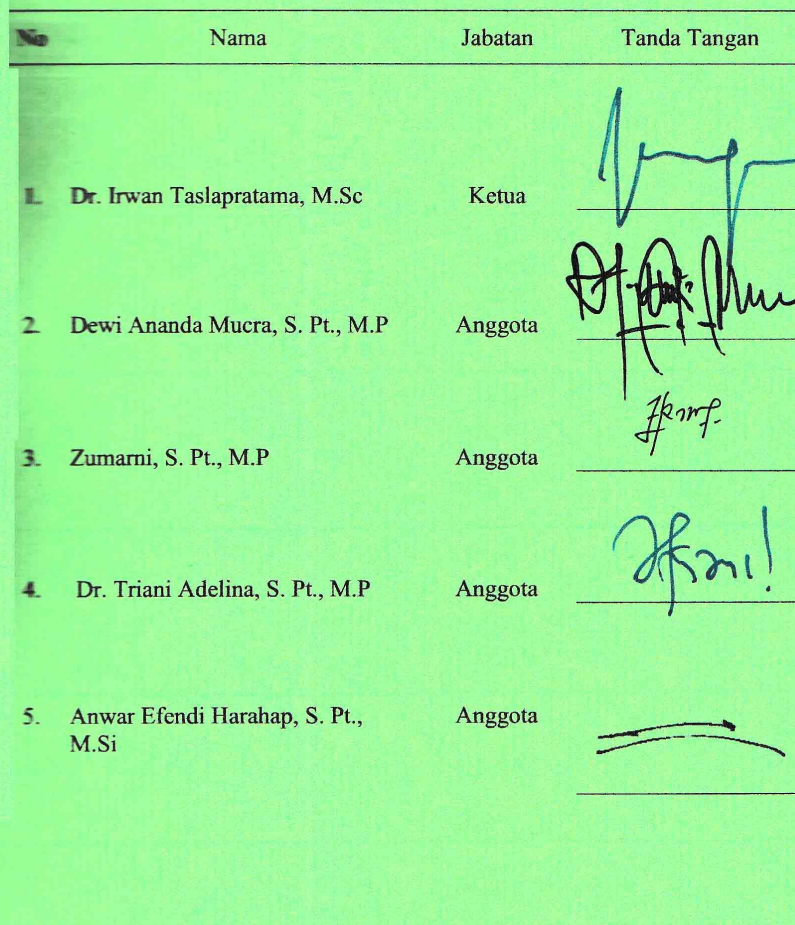 No Nama Jabatan Tanda Tangan
1. Dr. Irwan Taslapratama, M.Sc Ketua
2. Dewi Ananda Mucra, S. Pt., M.P Anggota
3. Zumarni, S. Pt., M.P Anggota
4. Dr. Triani Adelina, S. Pt., M.P Anggota
5. Anwar Efendi Harahap, S. Pt., Anggota
M.Si